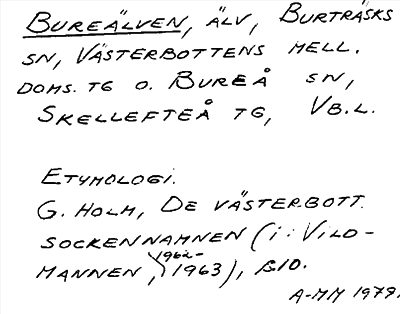 BUREÄLVEN, ÄLV, BURTRÄSKS
SN, VÄSTERBOTTENS MELL.
DOMS. TG O. BUREÅ SN,
SKELLEFTEÅ TG, VB.L.
ETYMOLOGI.
G. HOLM, DE VÄSTERBOTT.
SOCKENNAMNEN (I: VILD-
MANNEN, 1962-1963), S.10.
A-MM 1979.